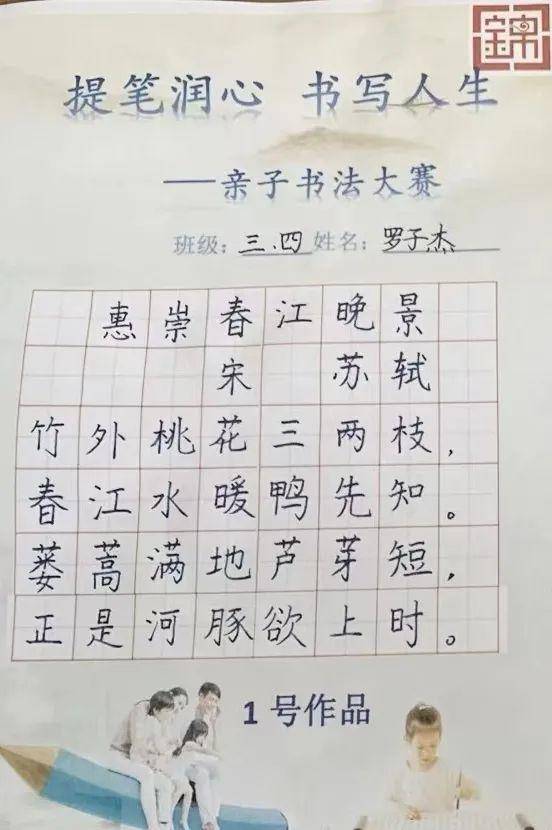 錦
提笔润心 书写人生
——亲子书法大赛
班级：三.四 姓名：罗子杰
惠崇春江晚景
宋 苏轼
竹外桃花三两枝，
春江水暖鸭先知。
蒌蒿满地芦芽短，
正是河豚欲上时。
1号作品